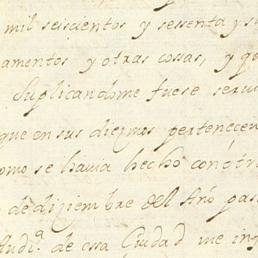 mil seiscientos y sessenta y s
amentos y otras cossas, y qu
Suplicandome fuese serui
que en sus diezmos pertenecen
omo se hauia hecho con otr
de diziembre del Año pas
Aud.ª de essa Ciudad me in